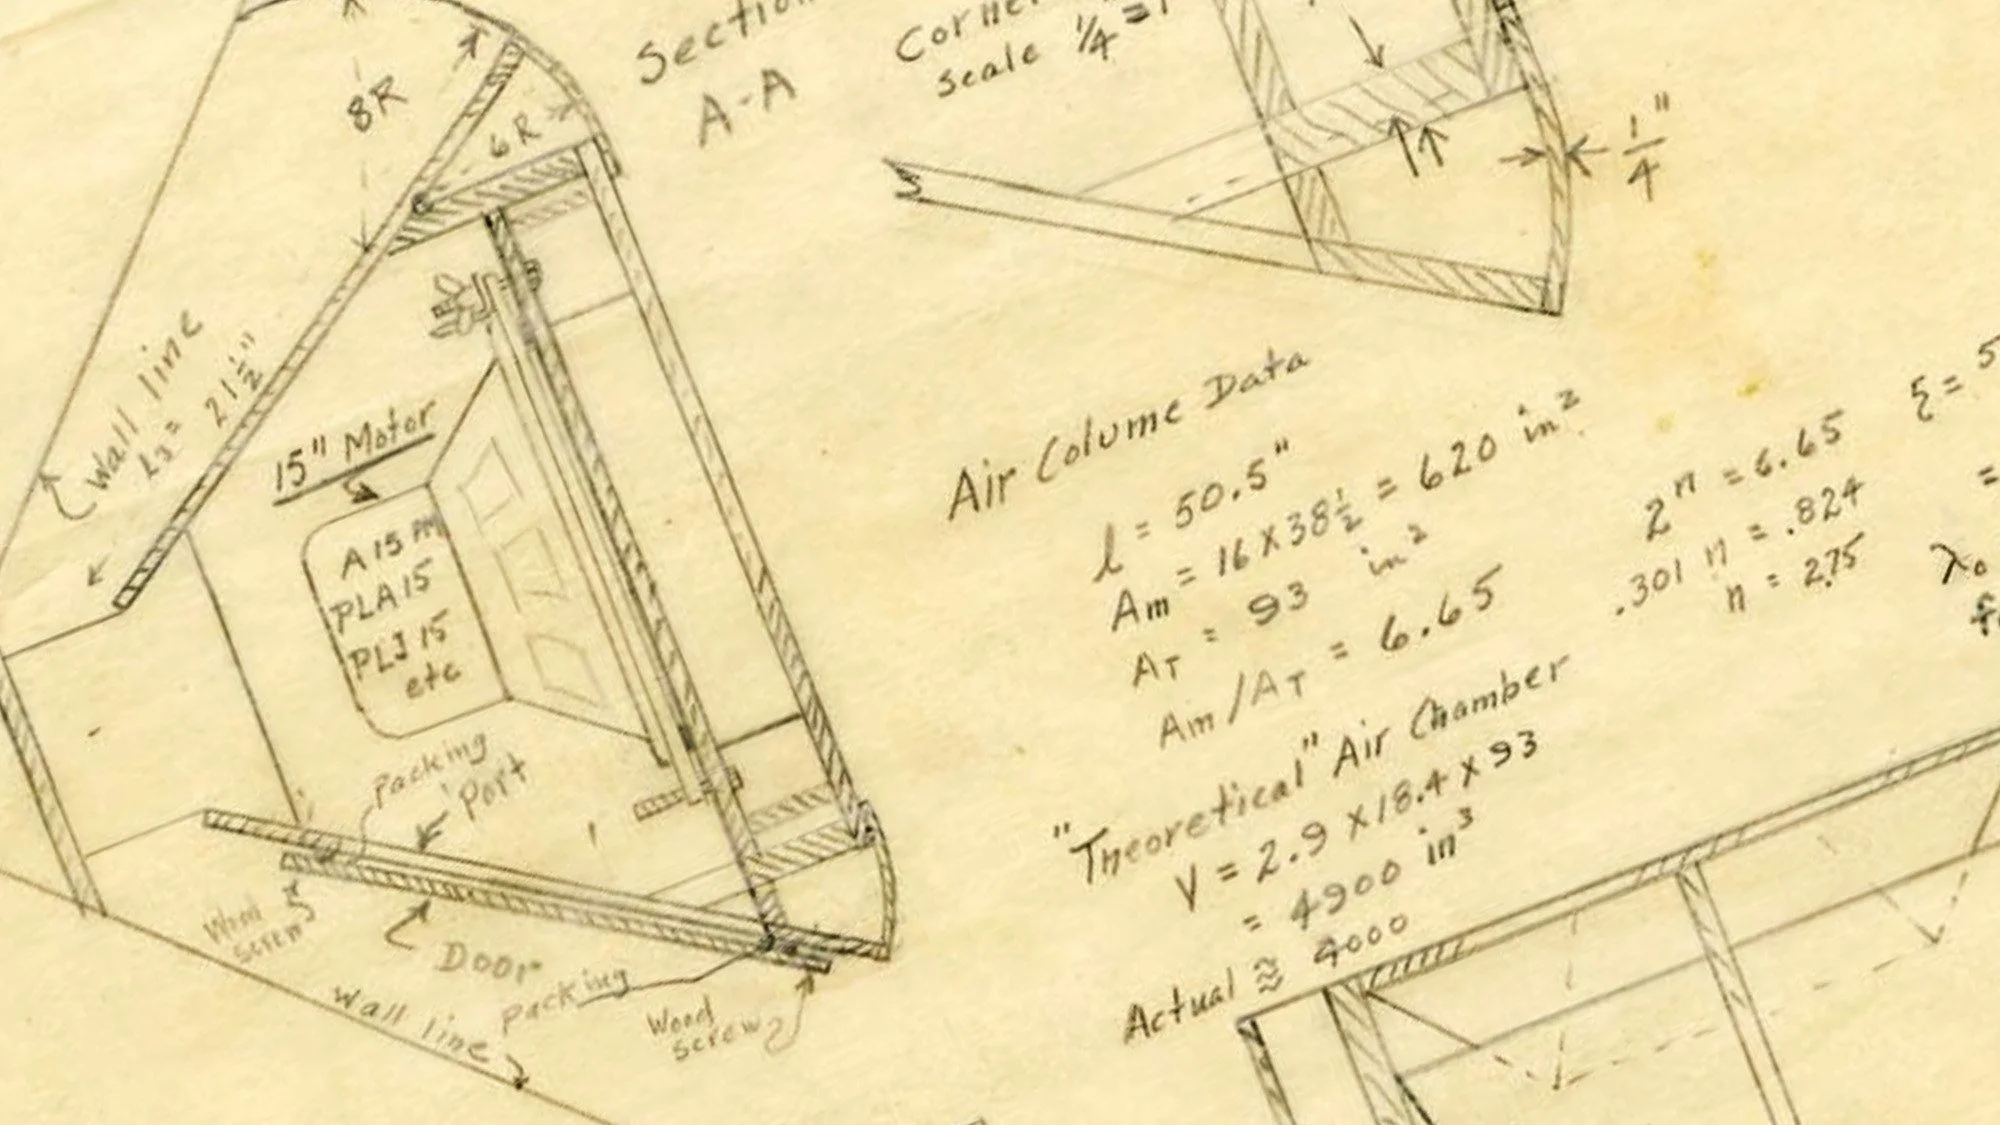 Section
A-A
Corne
Scale 1/4 = 1
8R
6R
1"/4
Wall line
L3 = 21 1/2"
15" Motor
A 15 AM
PLA 15
PLJ 15
etc
Packing
Port
Wood
screw
Door
packing
Wood
screw
wall line
Air Column Data
l = 50.5"
Am = 16 X 38 1/2 = 620 in²
AT = 93 in²
Am/AT = 6.65
2ⁿ = 6.65
.301 n = .824
n = 2.75
ξ = 5
=
λ₀
f
"Theoretical" Air Chamber
V = 2.9 X 18.4 X 93
= 4900 in³
Actual ≅ 4000